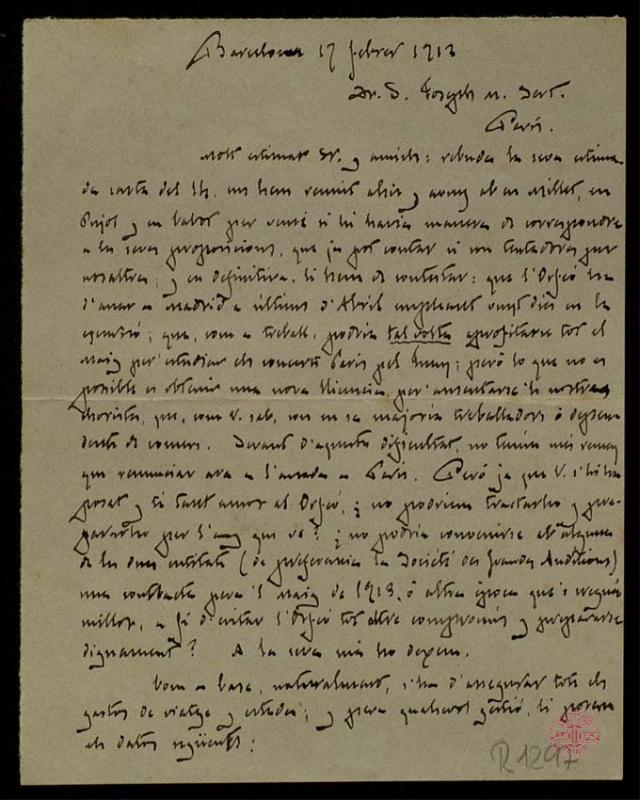 Barcelona 17 febrer 1912
Sr. D. Joseph M. Sert.
París.
Molt estimat Sr. y amich: rebuda la seva estima-
da carta del 14. ens hem reunit ahir y avuy ab en Millet, en
Pujol y en Cabot per veure si hi havia manera de correspondre
a les seves proposicions, que ja pot contar si son tentadores per
nosaltres; y en definitiva, li hem de contestar: que l'Orfeó ha
d'anar a Madrid a últims d'Abril empleant vuyt dies en la
excursió; que, com a treball, podria tal volta aprofitarse tot el
Maig per estudiar els concerts París pel Juny; peró lo que no es
possible es obtenir una nova llicencia per ausentarse 'ls nostres
choristes, que, com V. sab, son en sa majoria treballadors ó depen-
dents de comers. Devant d'aquesta dificultat, no tenim més remey
que renunciar ara a l'anada a París. Peró ja que V. s'hi ha
posat y té tant amor al Orfeó, ¿no podriem tractarho y pre-
pararho per l'any que ve? ¿no podria convenirse ab alguna
de les dues entitats (de preferencia la Société des Grandes Auditions)
un contracte pera 'l Maig de 1913, ó altra época que 's cregués
millor, a fi d'evitar l'Orfeó tot altre compromís y prepararse
dignament? A la seva má ho dexem.
Com a base, naturalment, s'ha d'assegurar tots els
gastos de viatge y estada; y pera qualsevol gestió, li posem
els datos següents:
R 1297